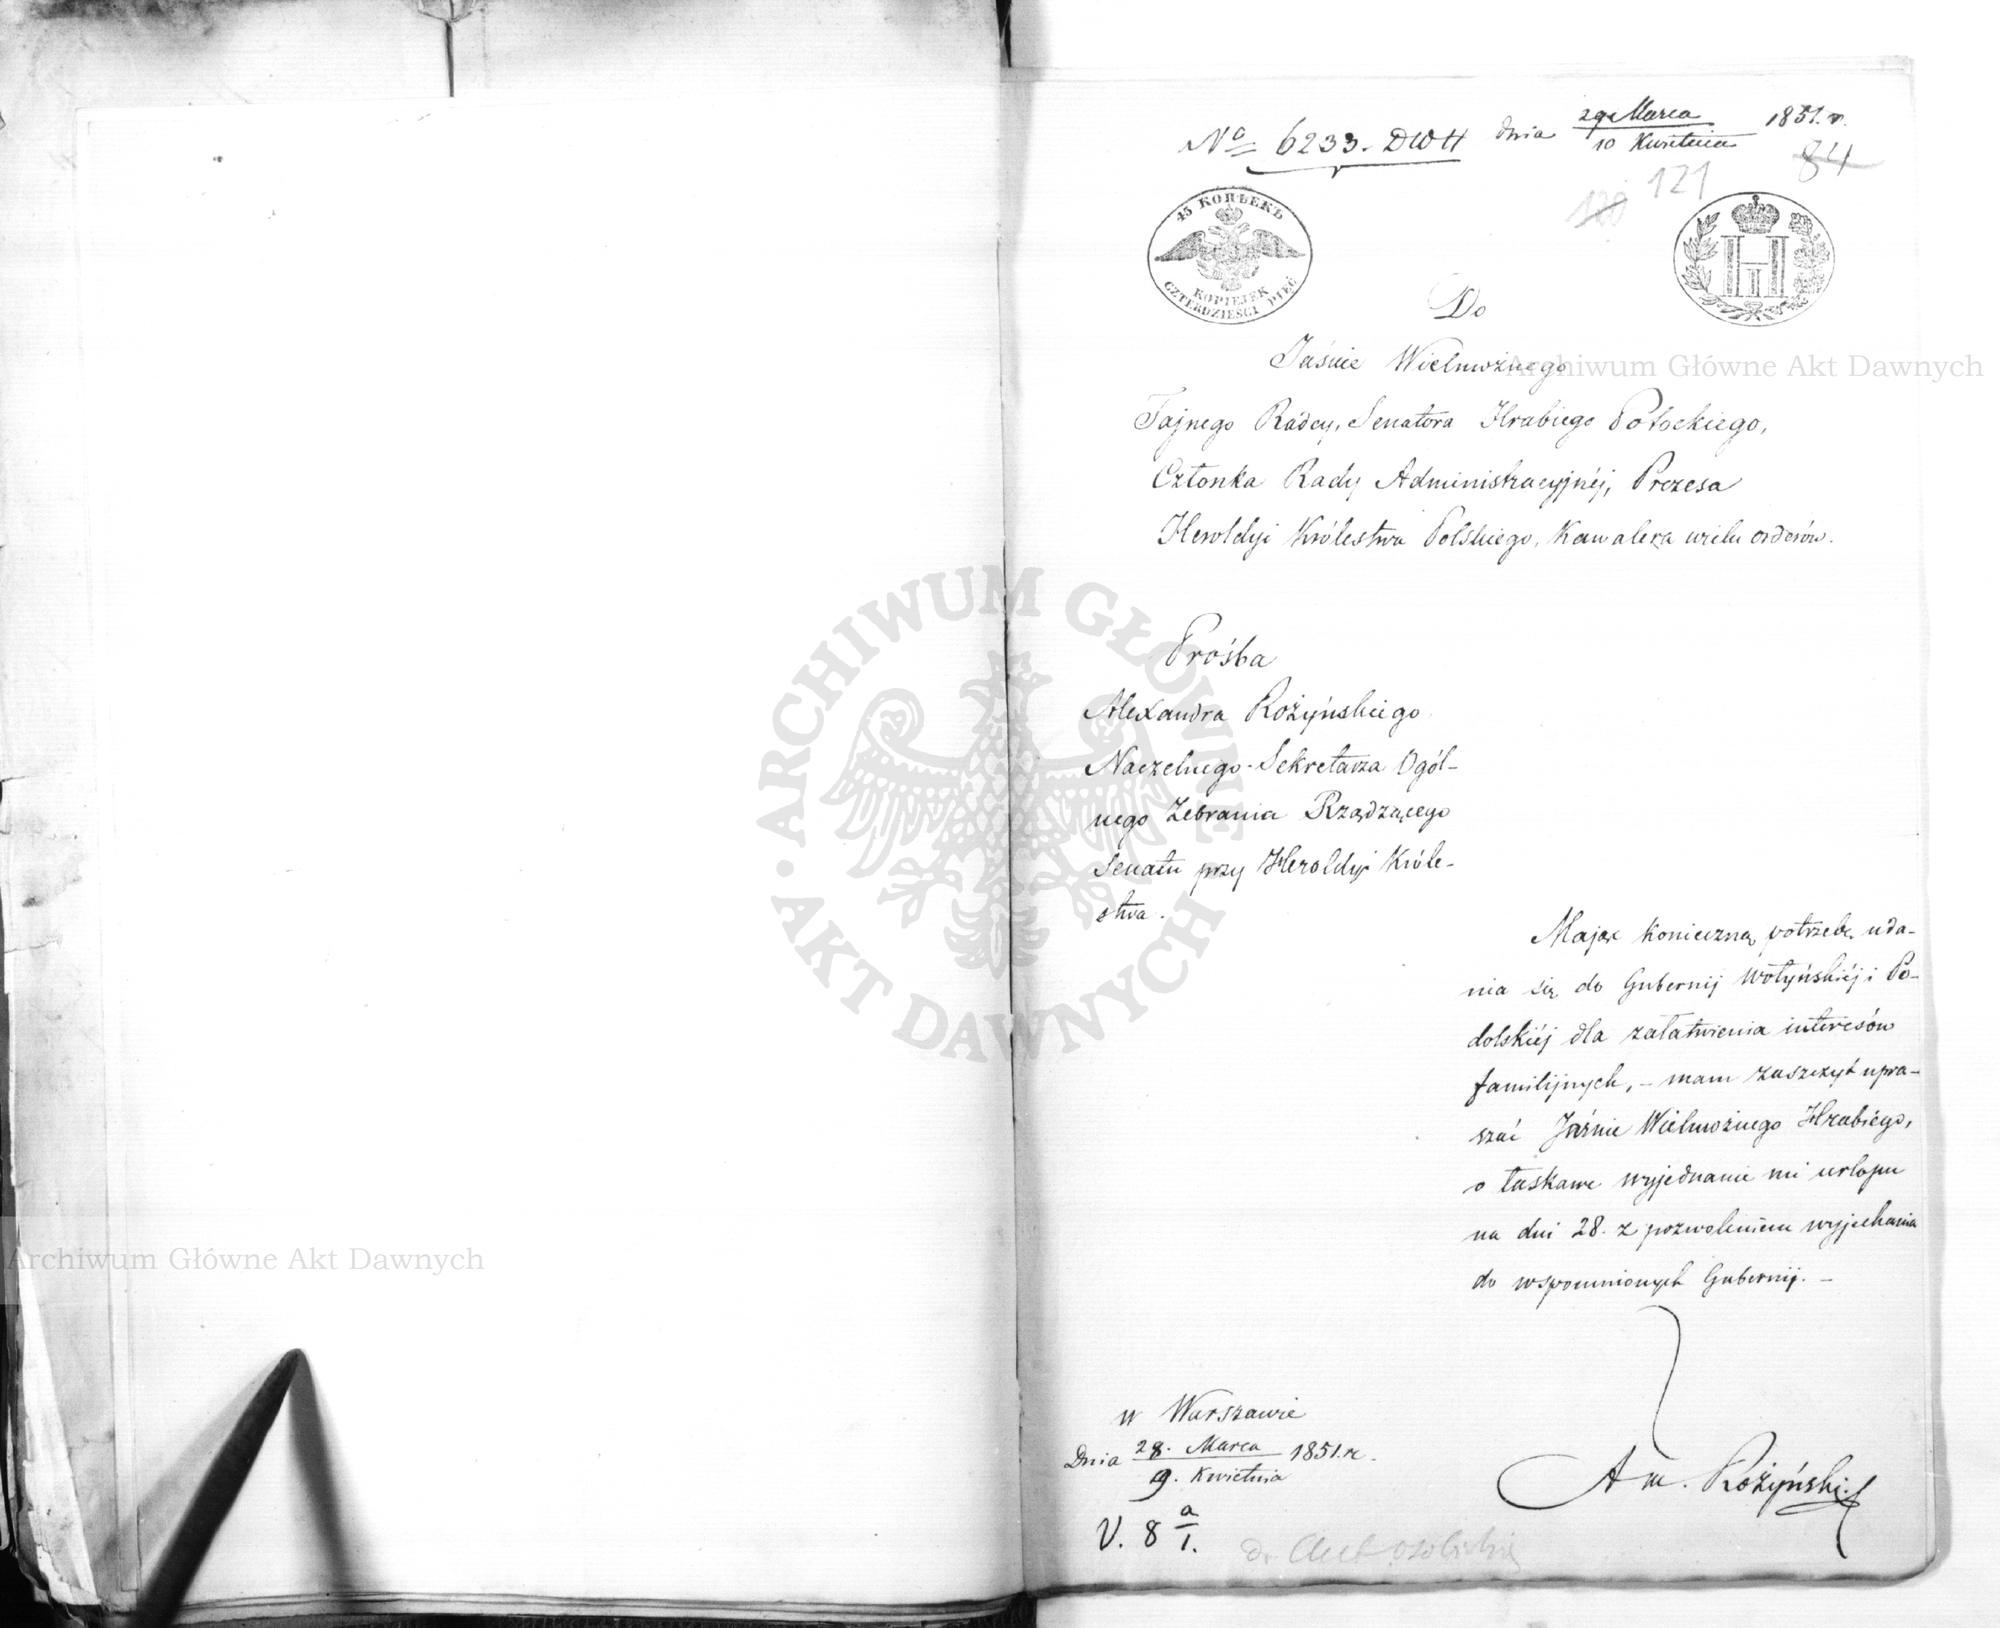 Nº 6233. DWH dnia 29 Marca / 10 Kwietnia 1851. r.
84
120 121
45 КОПѢЕКЪ
KOPIEJEK
CZTERDZIEŚCI PIĘĆ
Н I
Do
Jaśnie Wielmożnego
Tajnego Radcy, Senatora Hrabiego Potockiego,
Członka Rady Administracyjnéj, Prezesa
Heroldyi Królestwa Polskiego, Kawalera wielu orderów.
Prośba
Alexandra Rożyńskiego
Naczelnego-Sekretarza Ogól-
nego Zebrania Rządzącego
Senatu przy Heroldyi Króle-
stwa.
Mając konieczną potrzebę uda-
nia się do Gubernij Wołyńskiéj i Po-
dolskiéj dla załatwienia interesów
familijnych, – mam zaszczyt upra-
szać Jaśnie Wielmożnego Hrabiego,
o łaskawe wyjednanie mi urlopu
na dni 28. z pozwoleniem wyjechania
do wspomnionych Gubernij. –
w Warszawie
Dnia 28. Marca / 9. Kwietnia 1851. r.
A m. Rożyński
V. 8 a/1.
do Akt osobistych
Archiwum Główne Akt Dawnych
Archiwum Główne Akt Dawnych
ARCHIWUM GŁÓWNE · AKT DAWNYCH ·